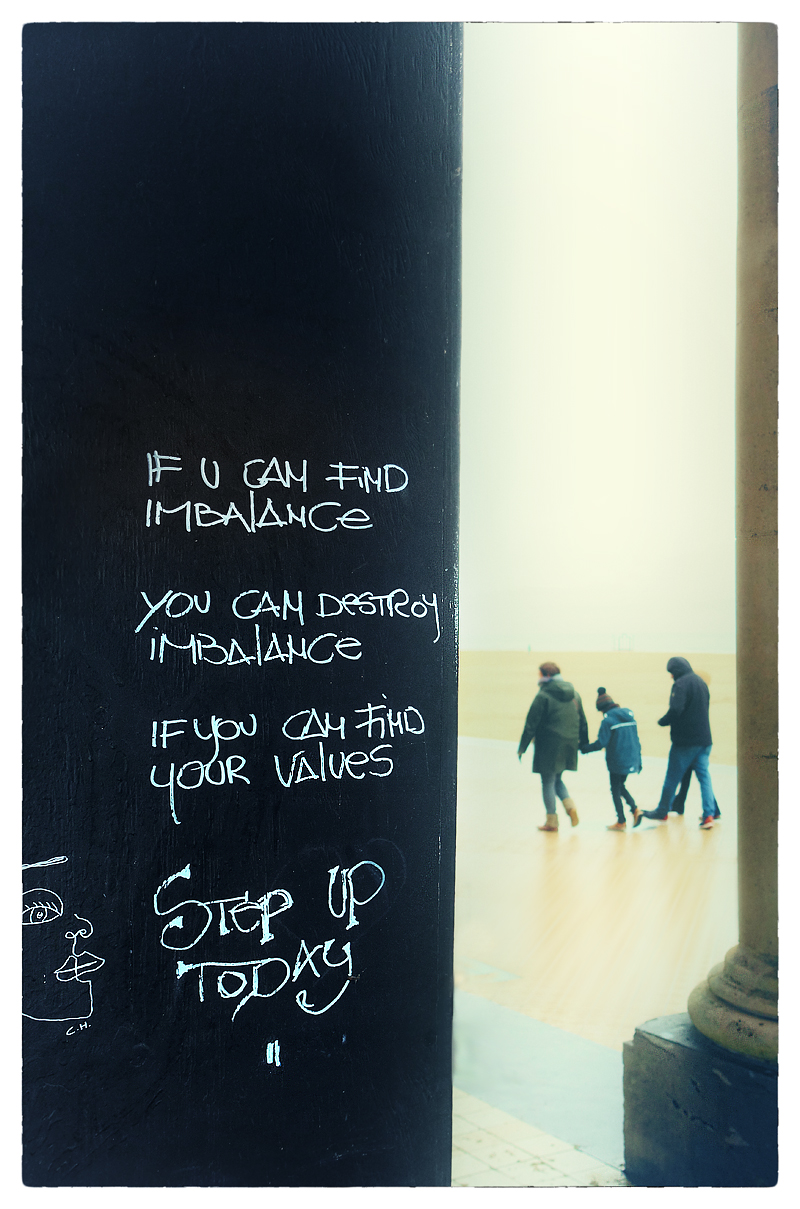 IF U CAN FiND
IMBAlANCe
YOU CAN DeSTROy
iMBAlANCe
IF yOU CAN FiND
yOUR VAlUeS
STeP UP
TODAY
"
C.H.